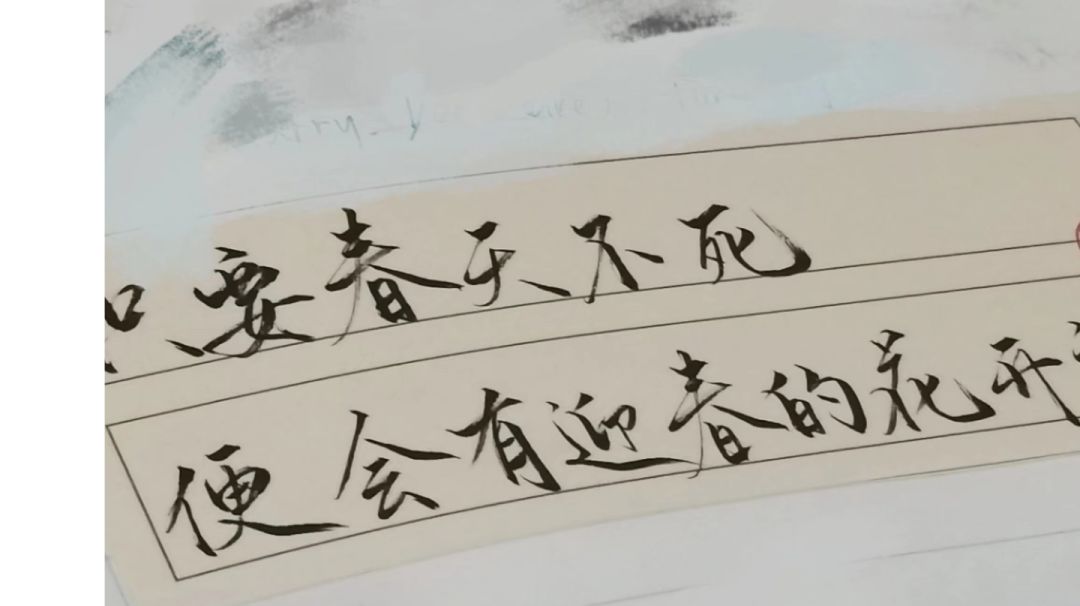 只要春天不死
便会有迎春的花开